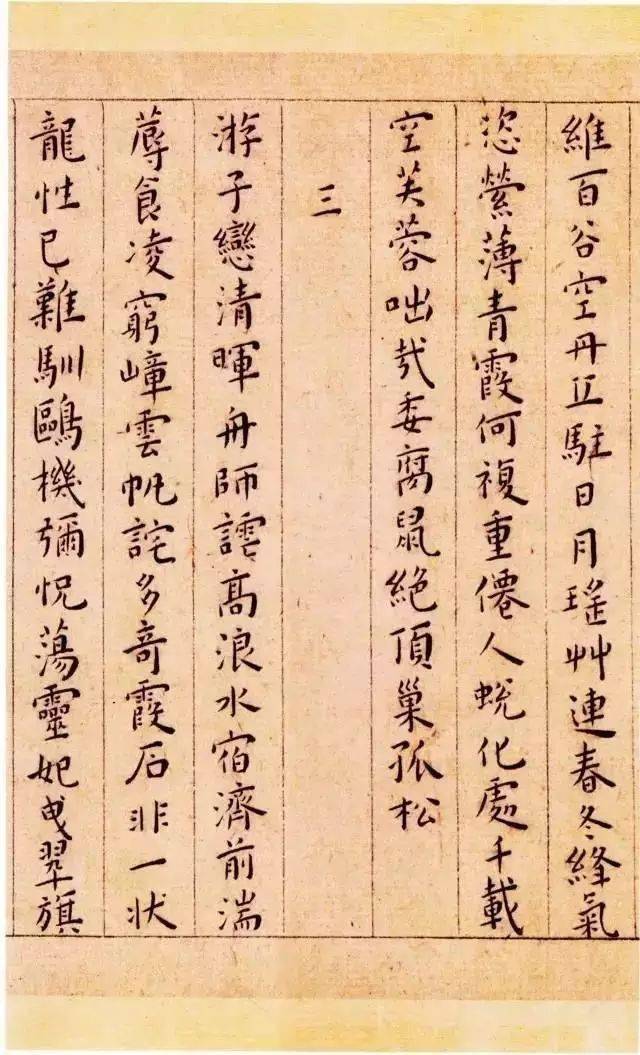 維百谷空丹丘駐日月瑤艸連春冬絳氣
恣縈薄青霞何複重僊人蛻化處千載
空芙蓉咄哉委腐鼠絕頂巢孤松
三
游子戀清暉舟師譹高浪水宿濟前湍
蓐食凌窮嶂雲帆詫多奇霞石非一狀
龍性已難馴鷗機彌怳蕩靈妃曳翠旗